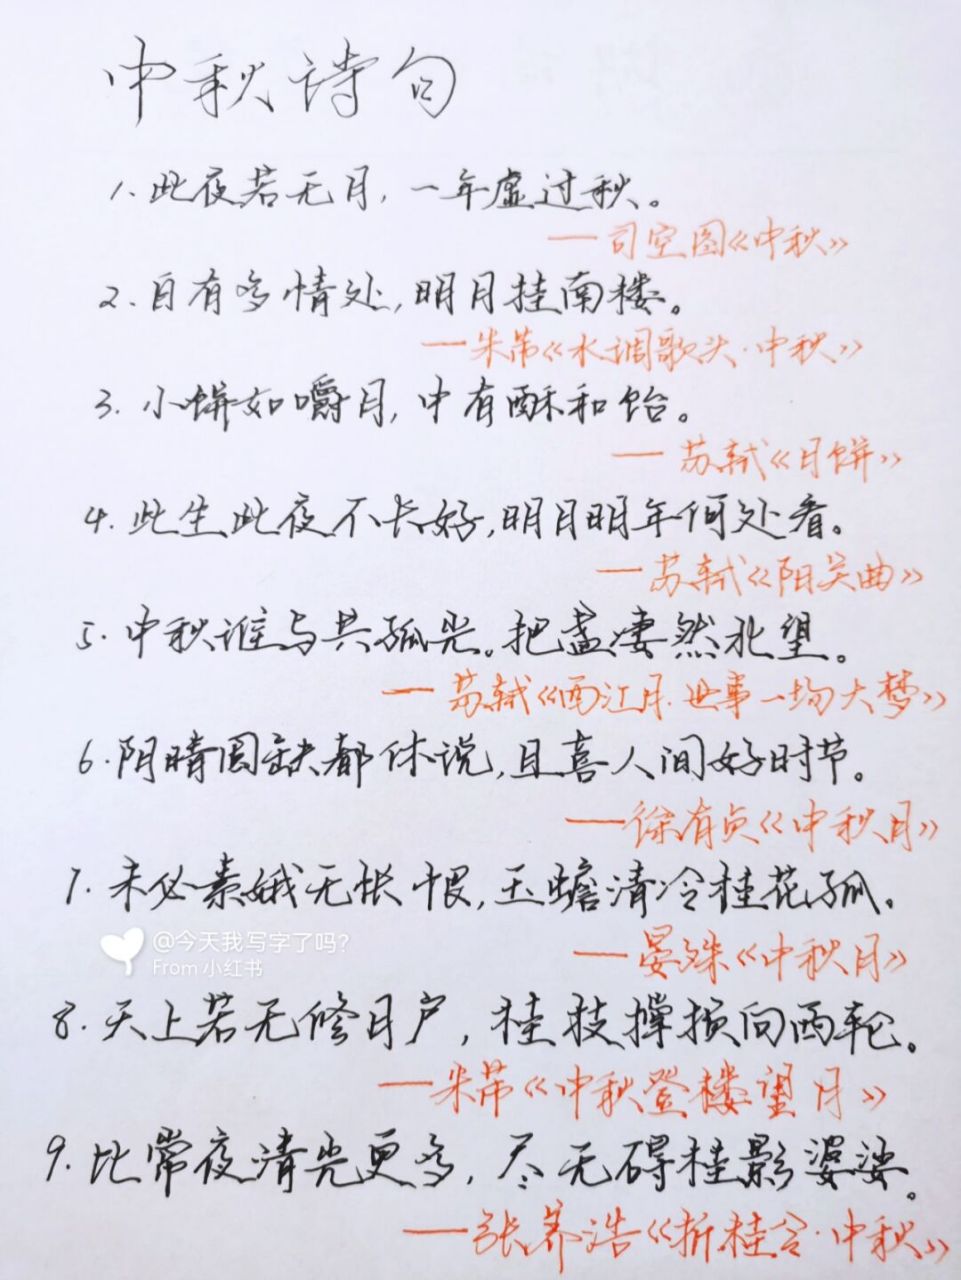 中秋诗句
1.此夜若无月,一年虚过秋。
——司空图《中秋》
2.自有多情处,明月挂南楼。
——米芾《水调歌头·中秋》
3.小饼如嚼月,中有酥和饴。
——苏轼《月饼》
4.此生此夜不长好,明月明年何处看。
——苏轼《阳关曲》
5.中秋谁与共孤光。把盏凄然北望。
——苏轼《西江月·世事一场大梦》
6.阴晴圆缺都休说,且喜人间好时节。
——徐有贞《中秋月》
7.未必素娥无怅恨,玉蟾清冷桂花孤。
@今天我写字了吗?
From 小红书
——晏殊《中秋月》
8.天上若无修月户,桂枝撑损向西轮。
——米芾《中秋登楼望月》
9.比常夜清光更多,尽无碍桂影婆娑。
——张养浩《折桂令·中秋》